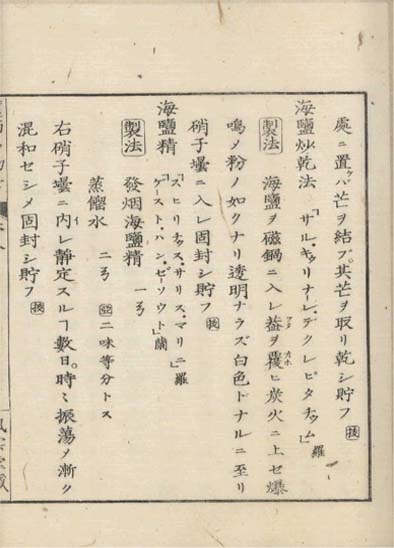 處ニ置ケバ芒ヲ結ブ。其芒ヲ取リ乾シ貯フ 扶
海鹽炒乾法 「サル、キュリナーレ、デクレピタチュム」羅
製法 海鹽ヲ磁鍋ニ入レ葢ヲ覆ヒ炭火ニ上セ爆
鳴メ粉ノ如クナリ透明ナラズ白色トナルニ至リ
硝子壜ニ入レ固封シ貯フ 扶
海鹽精 「スピリチュス、サリス、マリニ」羅
「ゲースト、ハン、ゼーソウト」蘭
製法 發烟海鹽精 一ゟ
蒸餾水 二ゟ 亞二味等分トス
右硝子壜ニ内レ靜定スルヿ數日。時々振蕩メ漸ク
混和セシメ固封シ貯フ 扶